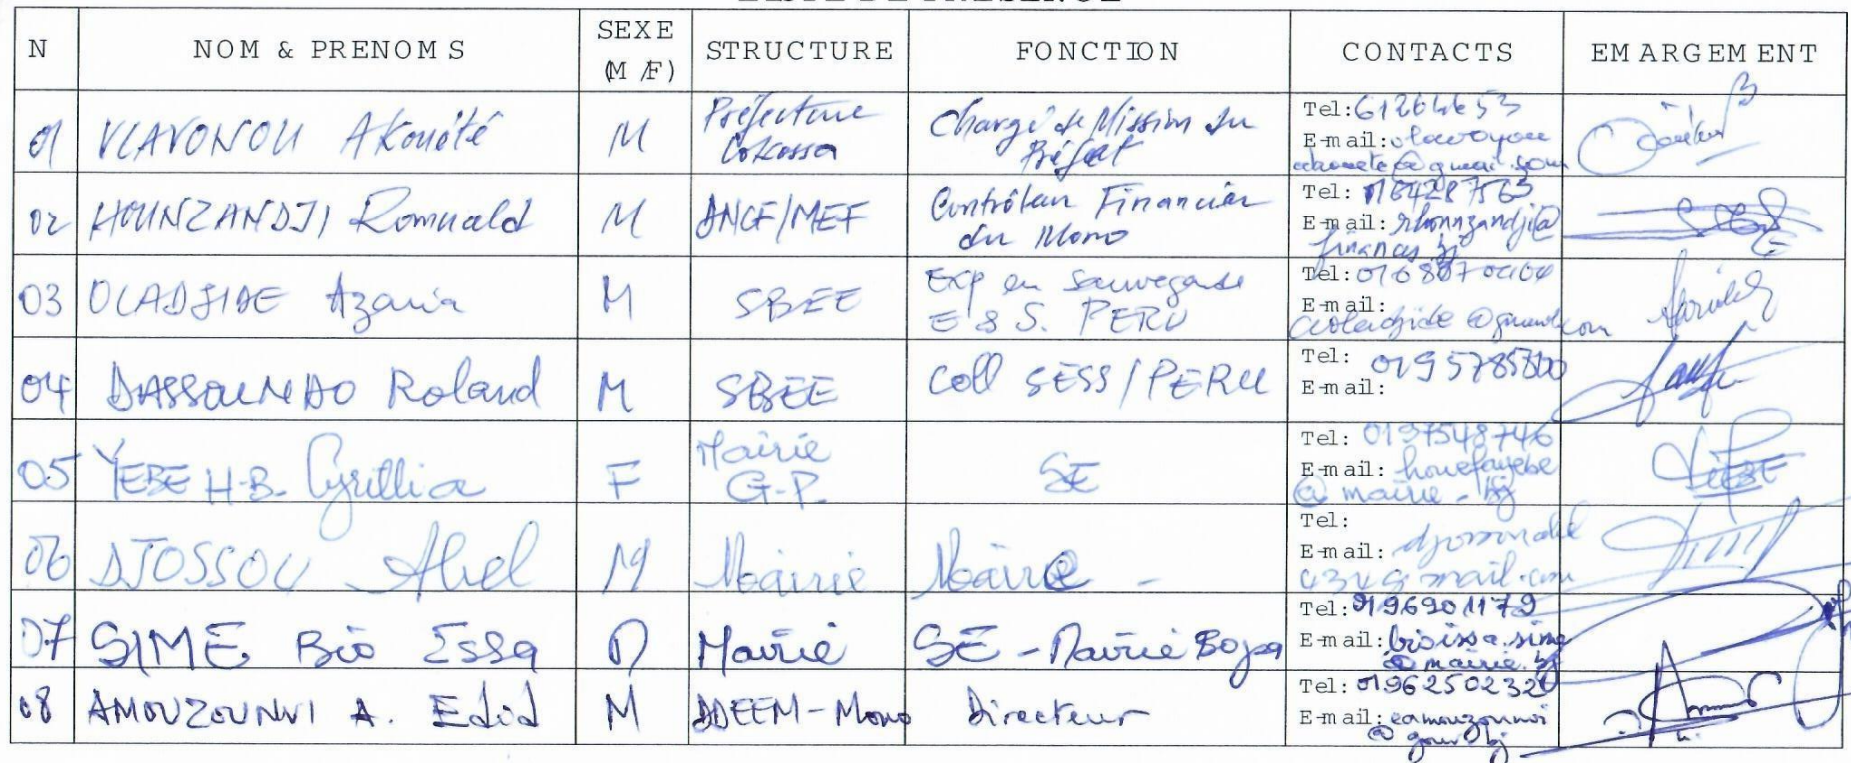 N NOM & PRENOMS SEXE (M/F) STRUCTURE FONCTION CONTACTS EMARGEMENT
01 VLAVONOU Akouété M Préfecture Lokossa Chargé de Mission du Préfet Tel: E-mail:
02 HOUNZANDJI Romuald M ANCF/MEF Contrôleur Financier du Mono Tel: 0164287563 E-mail: rhounzandji@finances.bj
03 OLADJIDE Azaria M SBEE Exp en Sauvegarde E & S. PERU Tel: E-mail:
04 DASSOUNDO Roland M SBEE Coll SESS/PERU Tel: E-mail:
05 YEBE H-B. Cyrillia F Mairie G-P. SE Tel: 0197548746 E-mail: houefayebe@mairie.bj
06 DJOSSOU Abel M Mairie Maire - Tel: E-mail:
07 SIME Bio Issa M Mairie SE - Mairie Bopa Tel: 0196901179 E-mail: bioissa.sime@mairie.bj
08 AMOUZOUNVI A. Edid M DDEEM-Mono Directeur Tel: 0196250232 E-mail: eamouzounvi@gouv.bj